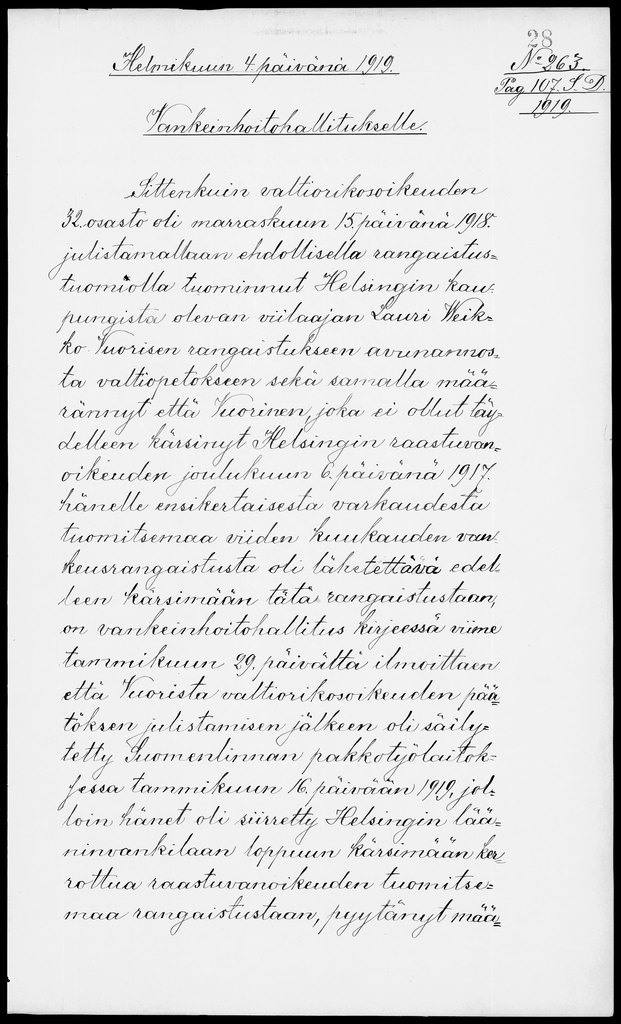 28
Helmikuun 4 päivänä 1919.
No 263.
Pag 107. S. D.
1919.
Vankeinhoitohallitukselle.
Sittenkuin valtiorikosoikeuden
32. osasto oli marraskuun 15. päivänä 1918.
julistamallaan ehdollisella rangaistus=
tuomiolla tuominnut Helsingin kau=
pungista olevan viilaajan Lauri Weik=
ko Vuorisen rangaistukseen avunannos=
ta valtiopetokseen sekä samalla mää=
rännyt että Vuorinen, joka ei ollut täy=
delleen kärsinyt Helsingin raastuvan=
oikeuden joulukuun 6. päivänä 1917.
hänelle ensikertaisesta varkaudesta
tuomitsemaa viiden kuukauden van=
keusrangaistusta oli lähetettävä edel=
leen kärsimään tätä rangaistustaan,
on vankeinhoitohallitus kirjeessä viime
tammikuun 29. päivältä ilmoittaen
että Vuorista valtiorikosoikeuden pää=
töksen julistamisen jälkeen oli säily=
tetty Suomenlinnan pakkotyölaitok=
sessa tammikuun 16. päivään 1919, jol=
loin hänet oli siirretty Helsingin lää=
ninvankilaan loppuun kärsimään ker=
rottua raastuvanoikeuden tuomitse=
maa rangaistustaan, pyytänyt mää=